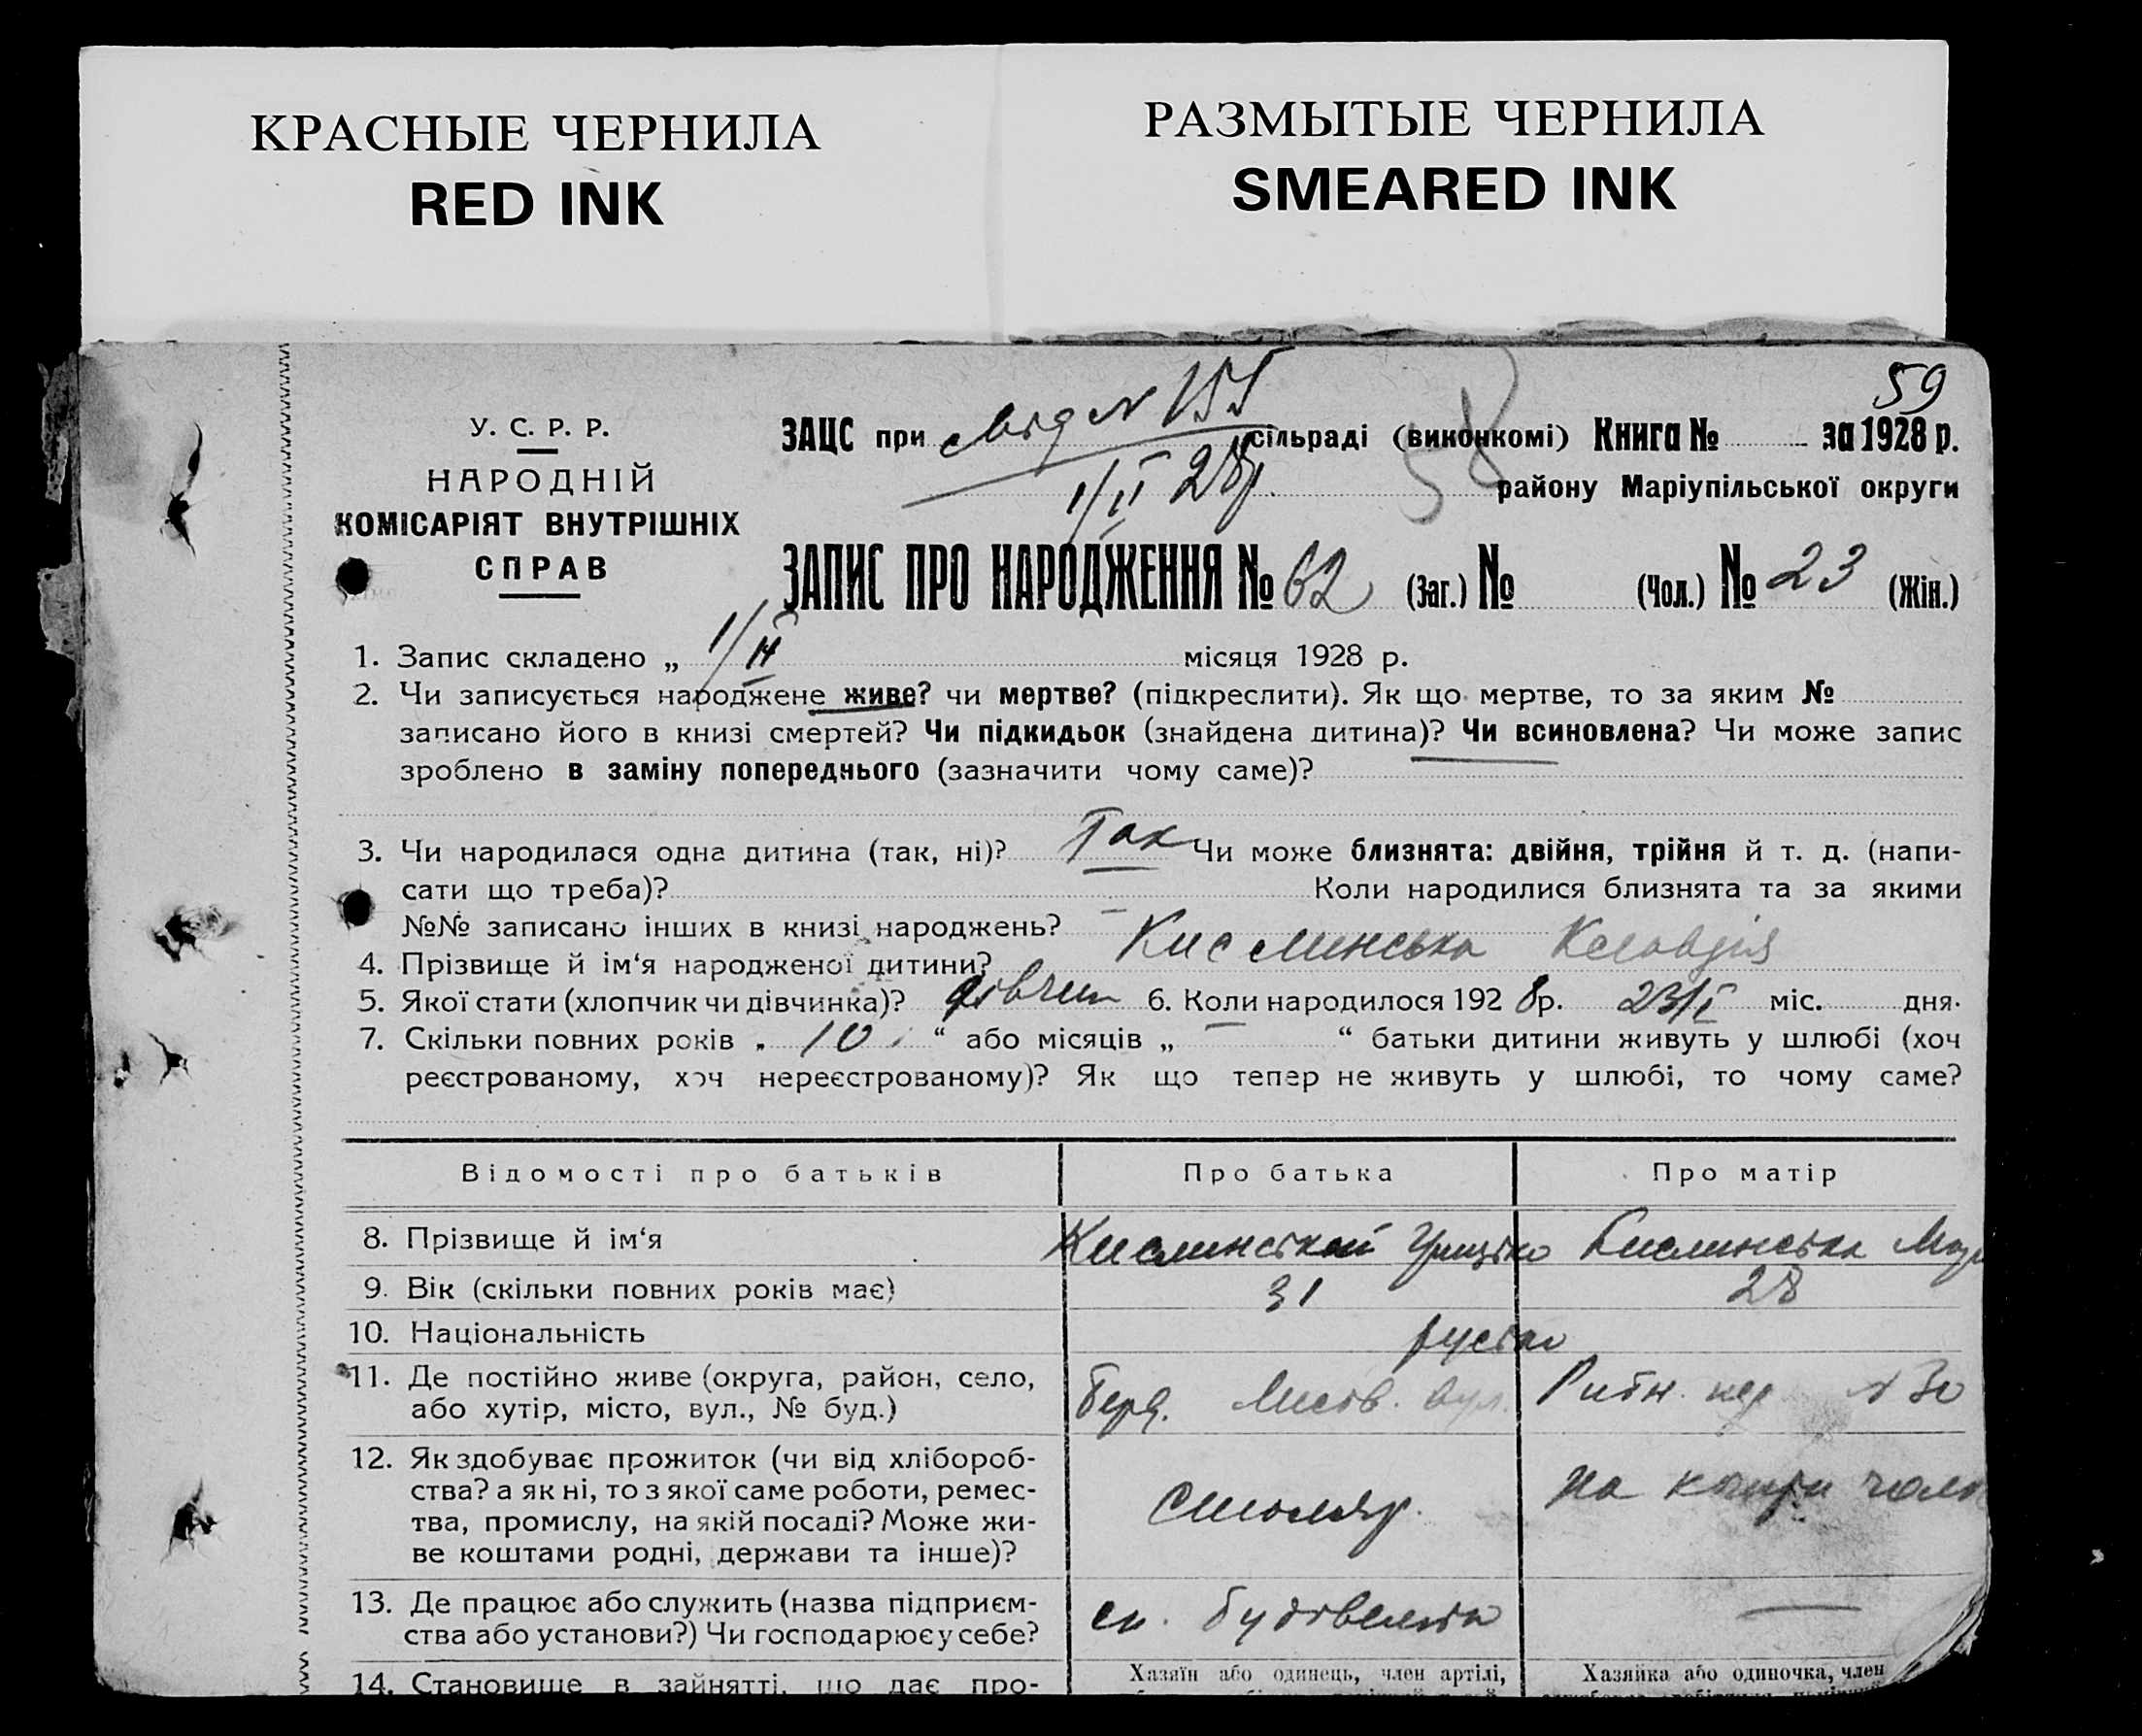 КРАСНЫЕ ЧЕРНИЛА
RED INK
РАЗМЫТЫЕ ЧЕРНИЛА
SMEARED INK
59
У. С. Р. Р.
НАРОДНІЙ
КОМІСАРІЯТ ВНУТРІШНІХ
СПРАВ
58
ЗАЦС при № 155 сільраді (виконкомі) Книга № за 1928 р.
1/II 28р. району Маріупільської округи
ЗАПИС ПРО НАРОДЖЕННЯ № 62 (Заг.) № (Чол.) № 23 (Жін.)
1. Запис складено „ 1/II місяця 1928 р.
2. Чи записується народжене живе? чи мертве? (підкреслити). Як що мертве, то за яким №
записано його в книзі смертей? Чи підкидьок (знайдена дитина)? Чи всиновлена? Чи може запис
зроблено в заміну попереднього (зазначити чому саме)?
3. Чи народилася одна дитина (так, ні)? Так Чи може близнята: двійня, трійня й т. д. (напи-
сати що треба)? Коли народилися близнята та за якими
№№ записано інших в книзі народжень? —
4. Прізвище й ім‘я народженої дитини? Кислинська Клавдія
5. Якої стати (хлопчик чи дівчинка)? дівчин 6. Коли народилося 1928 р. 23/I міс. дня.
7. Скільки повних років „ 10 “ або місяців „ — “ батьки дитини живуть у шлюбі (хоч
реєстрованому, хоч нереєстрованому)? Як що тепер не живуть у шлюбі, то чому саме?
Відомості про батьків Про батька Про матір
8. Прізвище й ім‘я Кислинський Грицько Кислинська
9. Вік (скільки повних років має) 31 28
10. Національність руські
11. Де постійно живе (округа, район, село,
або хутір, місто, вул., № буд.) Берд. вул. № 30
12. Як здобуває прожиток (чи від хлібороб-
ства? а як ні, то з якої саме роботи, ремес-
тва, промислу, на якій посаді? Може жи-
ве коштами родні, держави та інше)? столяр. на кошти чоло
13. Де працює або служить (назва підприєм-
ства або установи?) Чи господарює у себе? —
14. Становище в зайнятті, що дає про-
Хазяїн або одинець, член артілі,
Хазяйка або одиночка, член